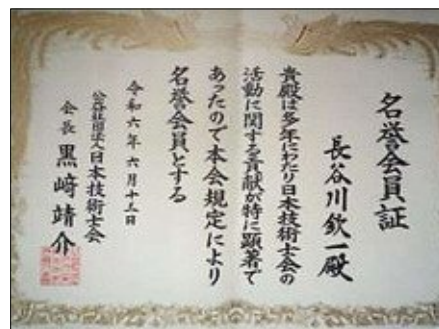 名誉会員証
長谷川欽一殿
貴殿は多年にわたり日本技術士会の
活動に関する貢献が特に顕著で
あったので本会規定により
名誉会員とする
令和六年六月十三日
公益社団法人日本技術士会
会長 黒﨑靖介